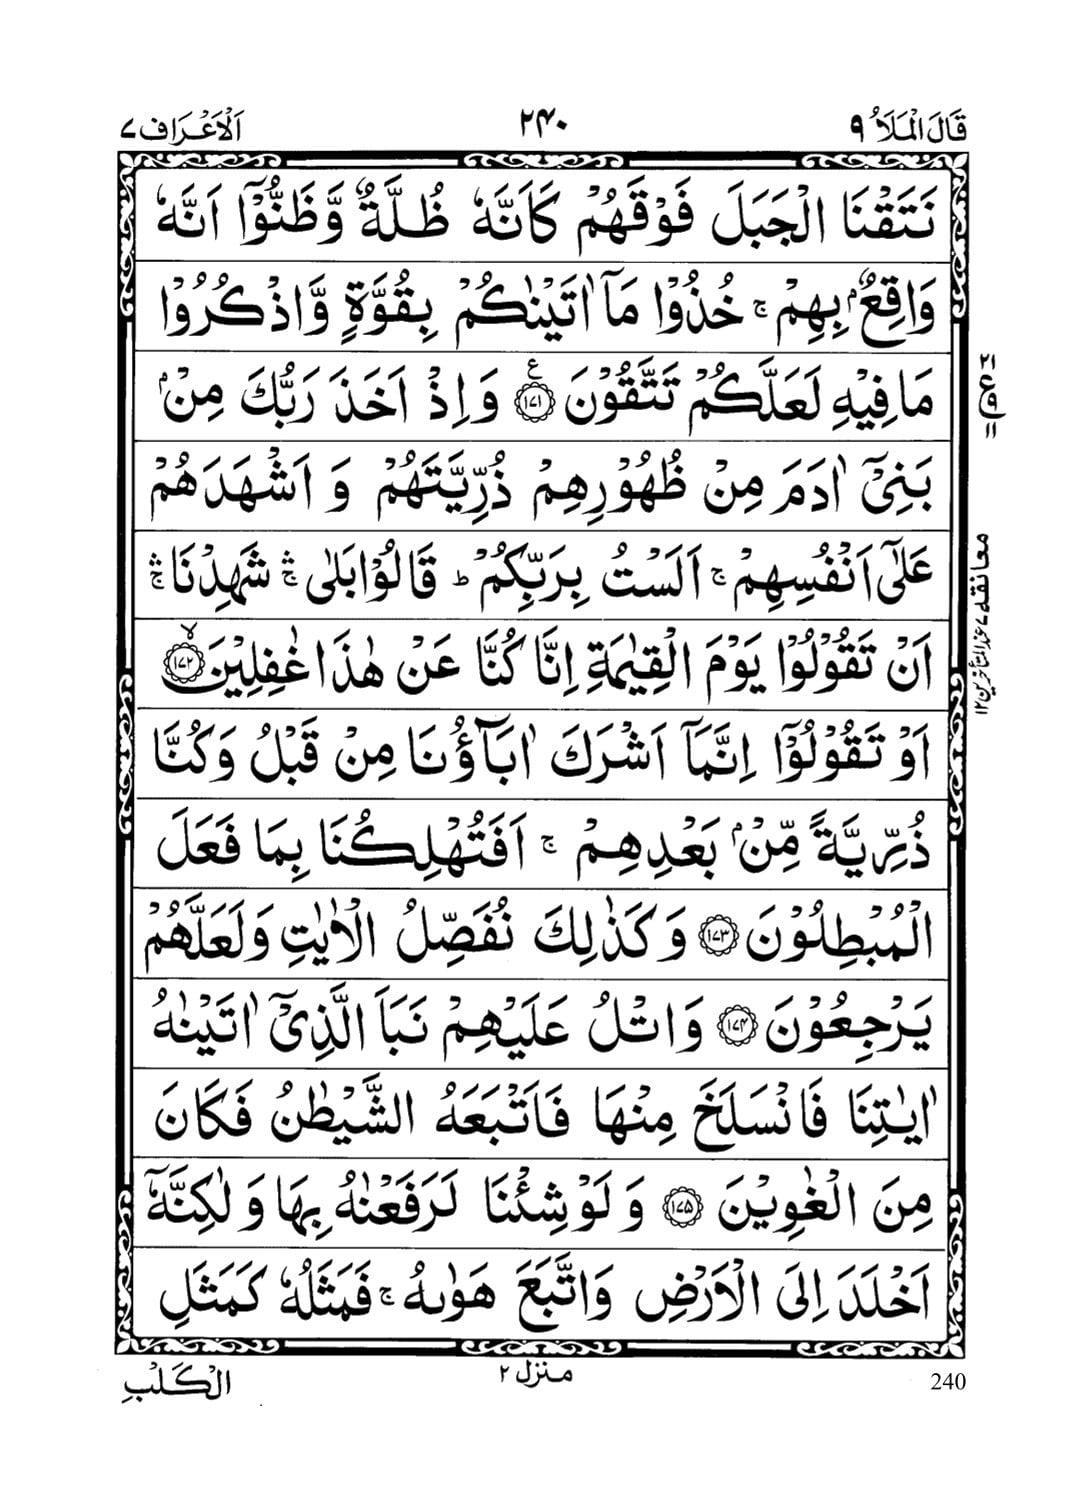 قَالَ الْمَلَاُ ٩
٢٤٠
اَلْاَعْرَاف ٧
نَتَقْنَا الْجَبَلَ فَوْقَهُمْ كَاَنَّهٗ ظُلَّةٌ وَّظَنُّوْۤا اَنَّهٗ
وَاقِعٌۢ بِهِمْ ۚ خُذُوْا مَاۤ اٰتَيْنٰكُمْ بِقُوَّةٍ وَّاذْكُرُوْا
مَا فِيْهِ لَعَلَّكُمْ تَتَّقُوْنَ ﴿١٧١﴾ ع وَاِذْ اَخَذَ رَبُّكَ مِنْۢ
بَنِيْۤ اٰدَمَ مِنْ ظُهُوْرِهِمْ ذُرِّيَّتَهُمْ وَ اَشْهَدَهُمْ
عَلٰۤى اَنْفُسِهِمْ ۚ اَلَسْتُ بِرَبِّكُمْ ؕ قَالُوْا بَلٰى ۛۚ شَهِدْنَا ۛۚ
اَنْ تَقُوْلُوْا يَوْمَ الْقِيٰمَةِ اِنَّا كُنَّا عَنْ هٰذَا غٰفِلِيْنَ ﴿١٧٢﴾ ۙ
اَوْ تَقُوْلُوْۤا اِنَّمَاۤ اَشْرَكَ اٰبَآؤُنَا مِنْ قَبْلُ وَكُنَّا
ذُرِّيَّةً مِّنْۢ بَعْدِهِمْ ۚ اَفَتُهْلِكُنَا بِمَا فَعَلَ
الْمُبْطِلُوْنَ ﴿١٧٣﴾ وَكَذٰلِكَ نُفَصِّلُ الْاٰيٰتِ وَلَعَلَّهُمْ
يَرْجِعُوْنَ ﴿١٧٤﴾ وَاتْلُ عَلَيْهِمْ نَبَاَ الَّذِيْۤ اٰتَيْنٰهُ
اٰيٰتِنَا فَانْسَلَخَ مِنْهَا فَاَتْبَعَهُ الشَّيْطٰنُ فَكَانَ
مِنَ الْغٰوِيْنَ ﴿١٧٥﴾ وَ لَوْ شِئْنَا لَرَفَعْنٰهُ بِهَا وَ لٰكِنَّهٗۤ
اَخْلَدَ اِلَى الْاَرْضِ وَاتَّبَعَ هَوٰىهُ ۚ فَمَثَلُهٗ كَمَثَلِ
٢١
ع
٩
١١
معانقه ٧ عند المتأخرين ١٢
240
منزل ٢
الْكَلْبِ